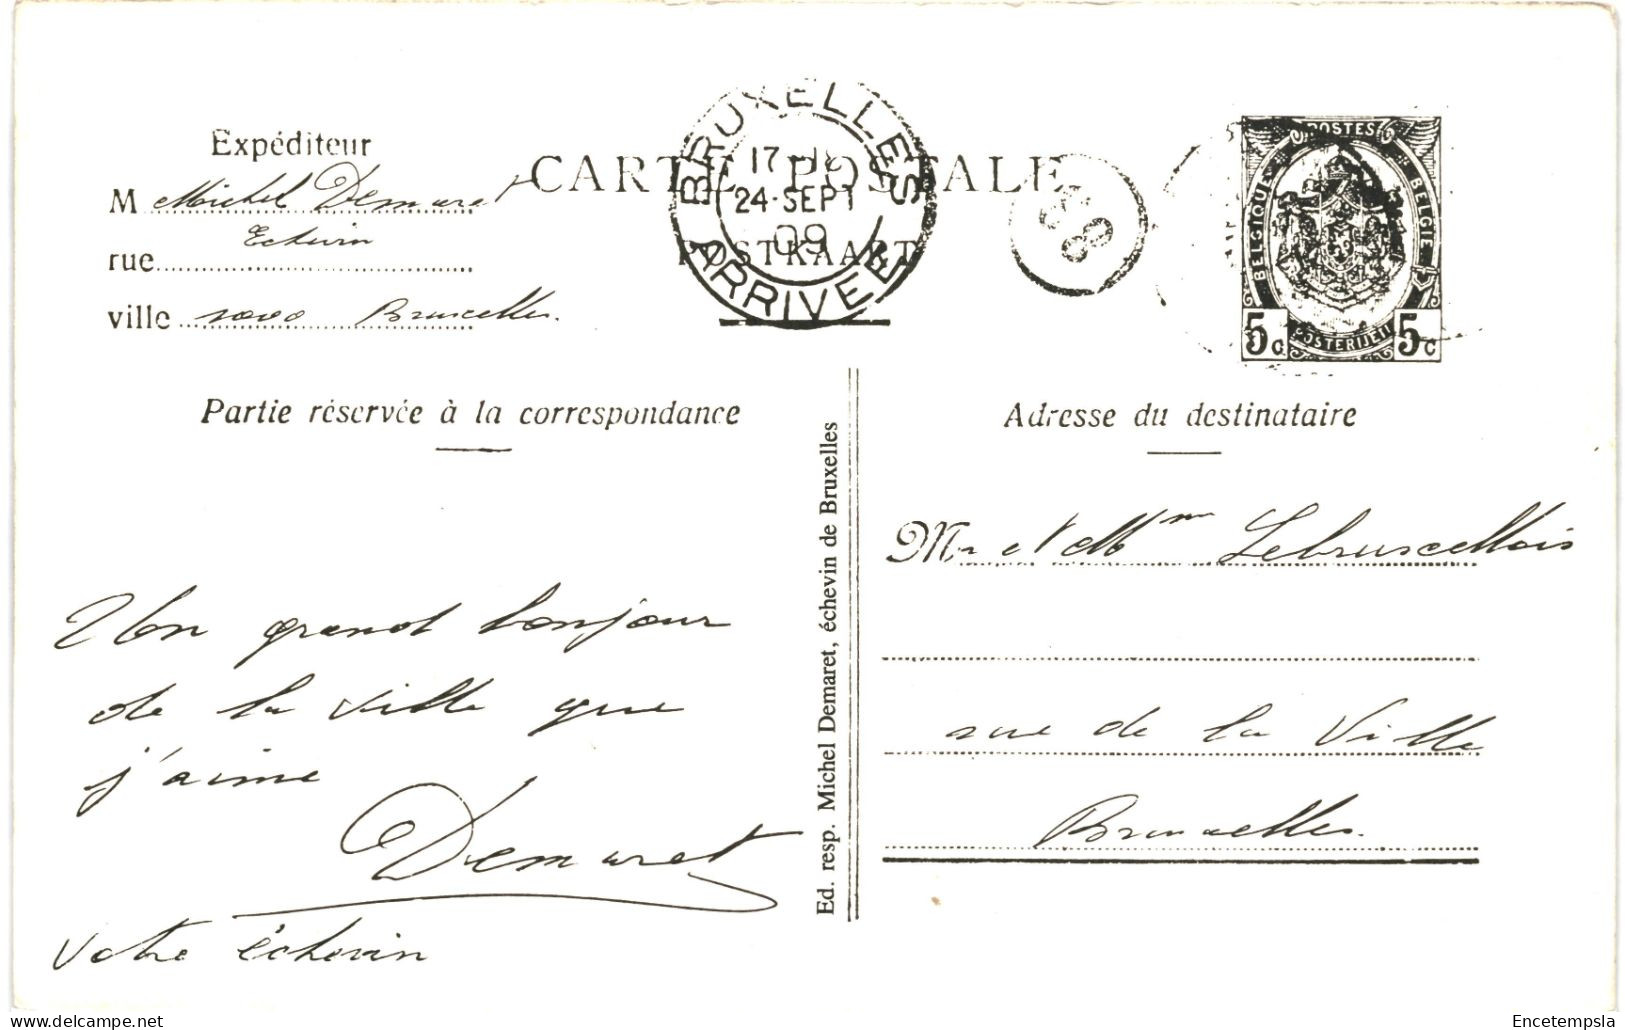 Expéditeur
M Michel Demaret
Echevin
rue
ville 1000 Bruxelles.
CARTE POSTALE
POSTKAART
BRUXELLES
24·SEPT
09
ARRIVEE
POSTES
BELGIQUE
BELGIE
POSTERIJEN
5c 5c
Partie réservée à la correspondance
Un grand bonjour
de la ville que
j'aime
Demaret
votre échevin
Ed. resp. Michel Demaret, échevin de Bruxelles
Adresse du destinataire
Mr et Mme Lebruxellois
rue de la Ville
Bruxelles.
delcampe.net
Encetempsla